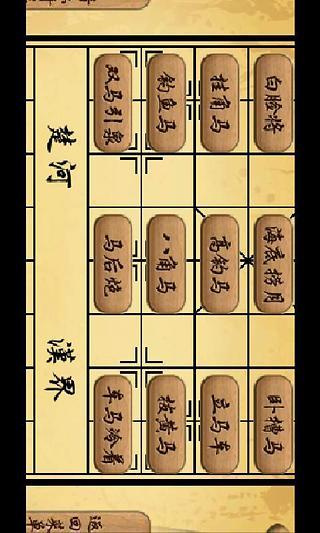 白脸将 海底捞月 卧槽马
挂角马 高钓马 立马车
钓鱼马 八角马 拔簧马
双马引象 马后炮 车马冷着
楚河 漢界
返回菜单